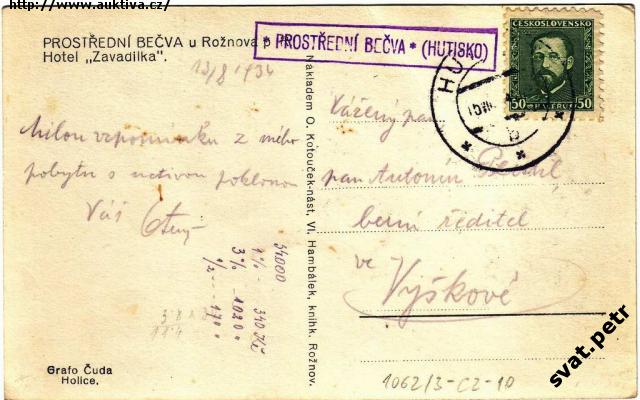 http://www.auktiva.cz/
PROSTŘEDNÍ BEČVA u Rožnova p
Hotel „Zavadilka“.
* PROSTŘEDNÍ BEČVA * (HUTISKO)
ČESKOSLOVENSKO
50 HALÉŘŮ 50
HU
13/8 1934
Milou vzpomínku z mého
pobytu s uctivou poklonou
Váš
Vážený pan
pan Antonín
berní ředitel
ve
Vyškově
34000
1% 340 Kč
3% 1020
1/2 170
Nákladem O. Kotouček-nást, Vl. Hambálek, knihk. Rožnov.
Grafo Čuda
Holice.
1062/3-CZ-10
svat.petr